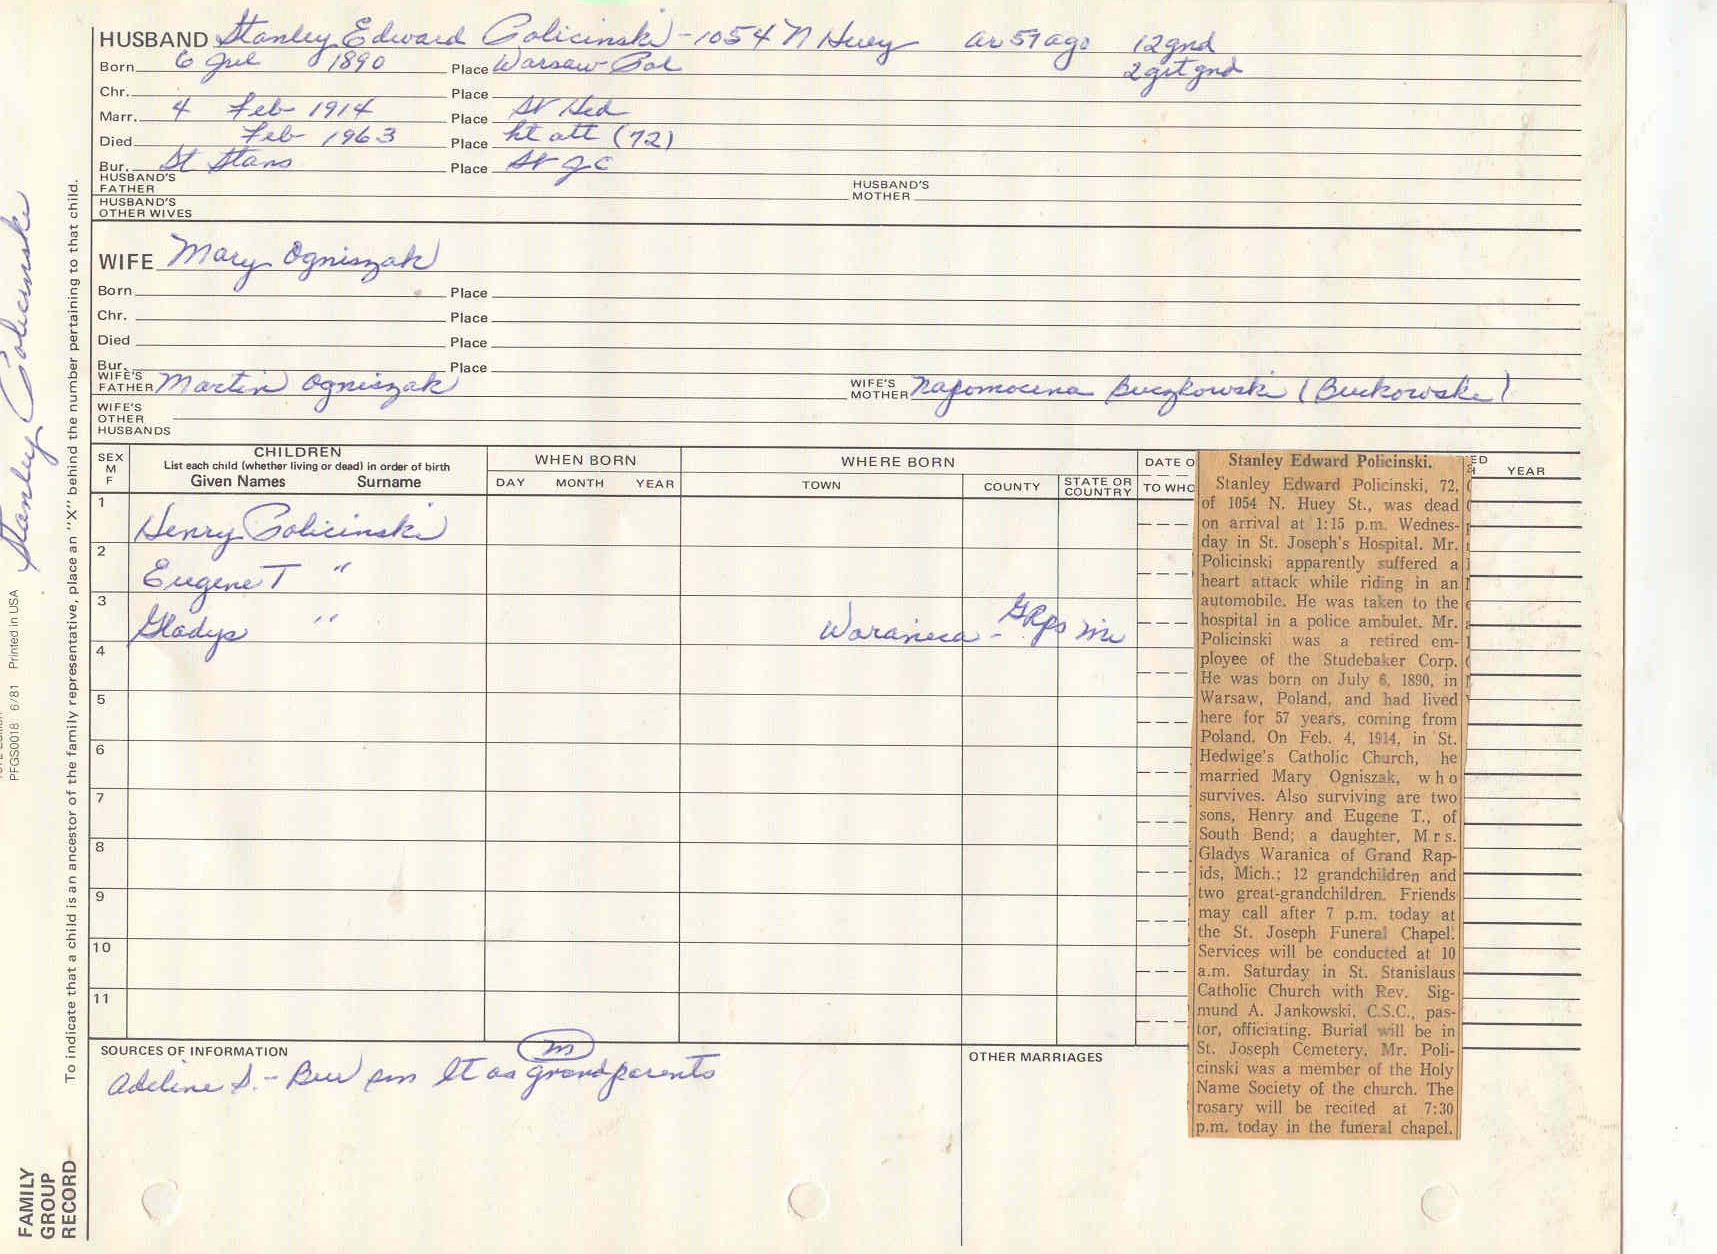 HUSBAND Stanley Edward Policinski - 1054 N Huey ar 57 ago 12 gnd
Born 6 Jul 1890 Place Warsaw Pol 2 grt gnd
Chr. Place
Marr. 4 Feb 1914 Place St Hed
Died Feb 1963 Place ht att (72)
Bur. St Stans Place St J C
HUSBAND'S FATHER HUSBAND'S MOTHER
HUSBAND'S OTHER WIVES
WIFE Mary Ogniszak
Born Place
Chr. Place
Died Place
Bur. Place
WIFE'S FATHER Martin Ogniszak WIFE'S MOTHER Napomocena Buczkowski (Buckowski)
WIFE'S OTHER HUSBANDS
SEX M F
CHILDREN
List each child (whether living or dead) in order of birth
Given Names Surname
WHEN BORN
DAY MONTH YEAR
WHERE BORN
TOWN COUNTY STATE OR COUNTRY
DATE O
TO WHO
ED
H YEAR
1 Henry Policinski
2 Eugene T "
3 Gladys " Waranica - GRps Mi
4
5
6
7
8
9
10
11
SOURCES OF INFORMATION
Adeline S. - Bur on lt as grandparents
m
OTHER MARRIAGES
Stanley Edward Policinski.
Stanley Edward Policinski, 72,
of 1054 N. Huey St., was dead
on arrival at 1:15 p.m. Wednes-
day in St. Joseph's Hospital. Mr.
Policinski apparently suffered a
heart attack while riding in an
automobile. He was taken to the
hospital in a police ambulet. Mr.
Policinski was a retired em-
ployee of the Studebaker Corp.
He was born on July 6, 1890, in
Warsaw, Poland, and had lived
here for 57 years, coming from
Poland. On Feb. 4, 1914, in St.
Hedwige's Catholic Church, he
married Mary Ogniszak, who
survives. Also surviving are two
sons, Henry and Eugene T., of
South Bend; a daughter, Mrs.
Gladys Waranica of Grand Rap-
ids, Mich.; 12 grandchildren and
two great-grandchildren. Friends
may call after 7 p.m. today at
the St. Joseph Funeral Chapel.
Services will be conducted at 10
a.m. Saturday in St. Stanislaus
Catholic Church with Rev. Sig-
mund A. Jankowski, C.S.C., pas-
tor, officiating. Burial will be in
St. Joseph Cemetery. Mr. Poli-
cinski was a member of the Holy
Name Society of the church. The
rosary will be recited at 7:30
p.m. today in the funeral chapel.
Stanley Policinski
PFGS0018 6/81 Printed in USA
To indicate that a child is an ancestor of the family representative, place an "X" behind the number pertaining to that child.
FAMILY
GROUP
RECORD